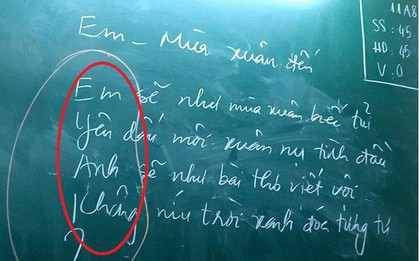 11A8
SS : 45
HD : 45
V : 0
Em - Mùa xuân đến
Em sẽ như mùa xuân biết
Yêu dấu môi xuân nụ tình đầu
Anh sẽ như bài thơ viết vội
Không níu trời xanh đoá tương tư
?